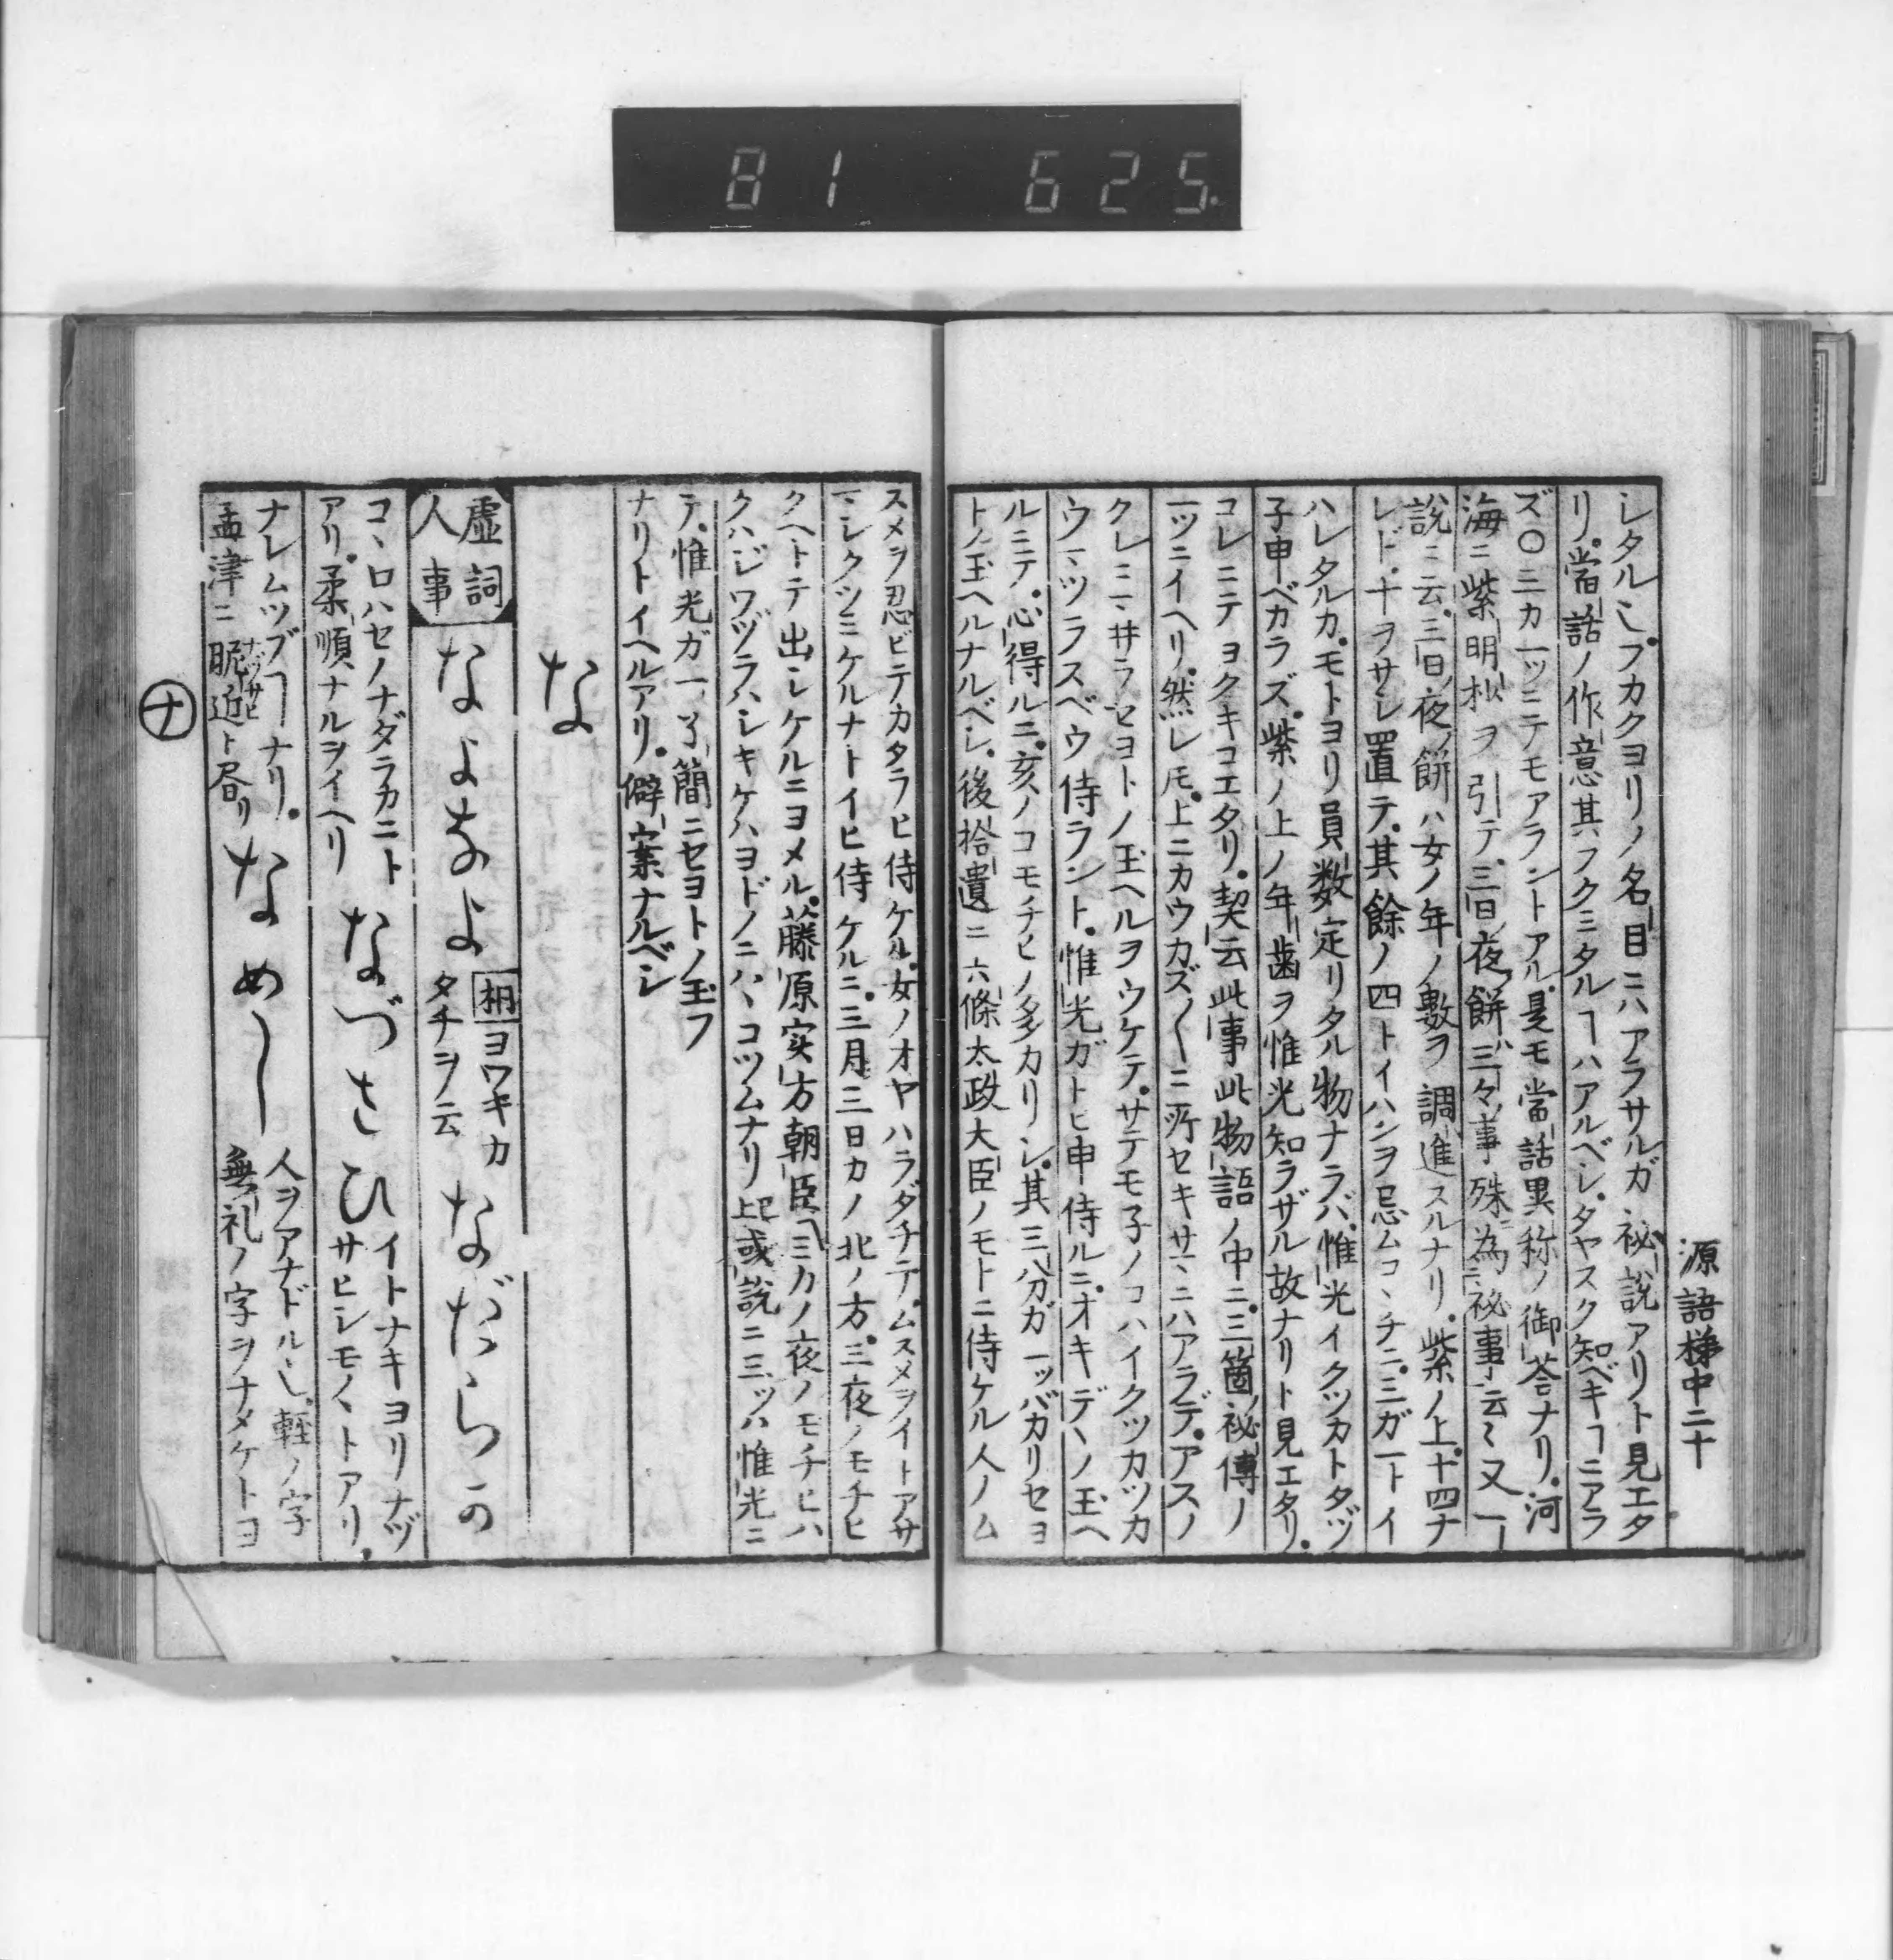 81 625
源語梯中二十
シタル也。フカクヨリノ名目ニハアラサルガ祕説アリト見エタ
リ。當話ノ作意其フクミタルヿハアルベシ。タヤスク知ベキヿニアラ
ズ〇三カ一ッニテモアラントアル。是モ當話異称ノ御荅ナリ。河
海ニ紫明抄ヲ引テ、三日夜餅三々事殊為祕事云々又一
説ニ云。三日夜餅ハ女ノ年ノ數ヲ調進スルナリ。紫ノ上。十四ナ
レド。十ヲサシ置テ。其餘ノ四トイハンヲ忌ムコヽチニ。三ガ一トイ
ハレタルカ。モトヨリ員数定リタル物ナラバ。惟光イクツカトタヅ
子申ベカラズ。紫ノ上ノ年歯ヲ惟光知ラザル故ナリト見エタリ。
コレニテヨクキコエタリ。契云此事此物語ノ中ニ。三箇ノ祕傳ノ
一ッニイヘリ。然レモ。上ニカウカズ〳〵ニ所セキサマニハアラデ。アスノ
クレニヽヰラセヨトノ玉ヘルヲウケテ。サテモ子ノコハイクツカツカ
ウマツラスベウ侍ラント。惟光ガトヒ申侍ルニ。オキデヽノ玉ヘ
ルニテ。心得ルニ。亥ノコモチヒノ多カリシ。其三分ガ一ッバカリセヨ
トノ玉ヘルナルベシ。後拾遺ニ六條太政大臣ノモトニ侍ケル人ノム
スメヲ忍ビテカタラヒ侍ケル。女ノオヤハラダチテ。ムスメヲイトアサ
マシクツミケルナトイヒ侍ケルニ。三月三日カノ北ノ方。三夜ノモチヒ
クヘトテ出シケルニヨメル。藤原実方朝臣ミカノ夜ノモチヒハ
クハジワヅラハシキケハヨドノニハヽコツムナリ 或説ニ三ッハ惟光ニ
テ。惟光ガ一了簡ニセヨトノ玉フ
ナリトイヘルアリ。僻案ナルベシ
な
虚詞
人事
なよなよ
ヨワキカ
タチヲ云
なだらか
コヽロハセノナダラカニト
アリ。柔順ナルヲイヘリ
なづさひ
イトナキヨリナヅ
サヒシモノトアリ。
ナレムツブヿナリ。
孟津ニ昵近ト居リ
ナヅサヒ
なめし
人ヲアナドル也。軽ノ字
無礼ノ字ヲナメケトヨ
ナ